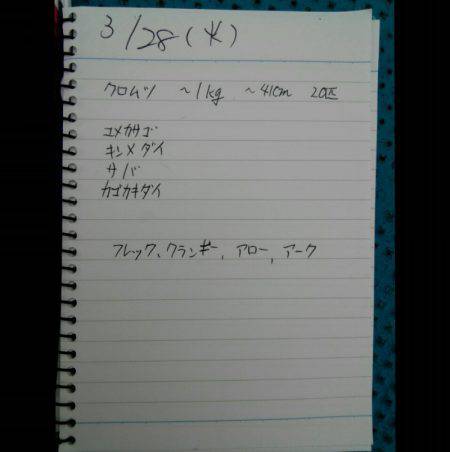 3/28(水)
クロムツ ～1kg ～41cm 20匹
ユメカサゴ
キンメダイ
サバ
カゴカキダイ
フレック、クランキー、アロー、アーク